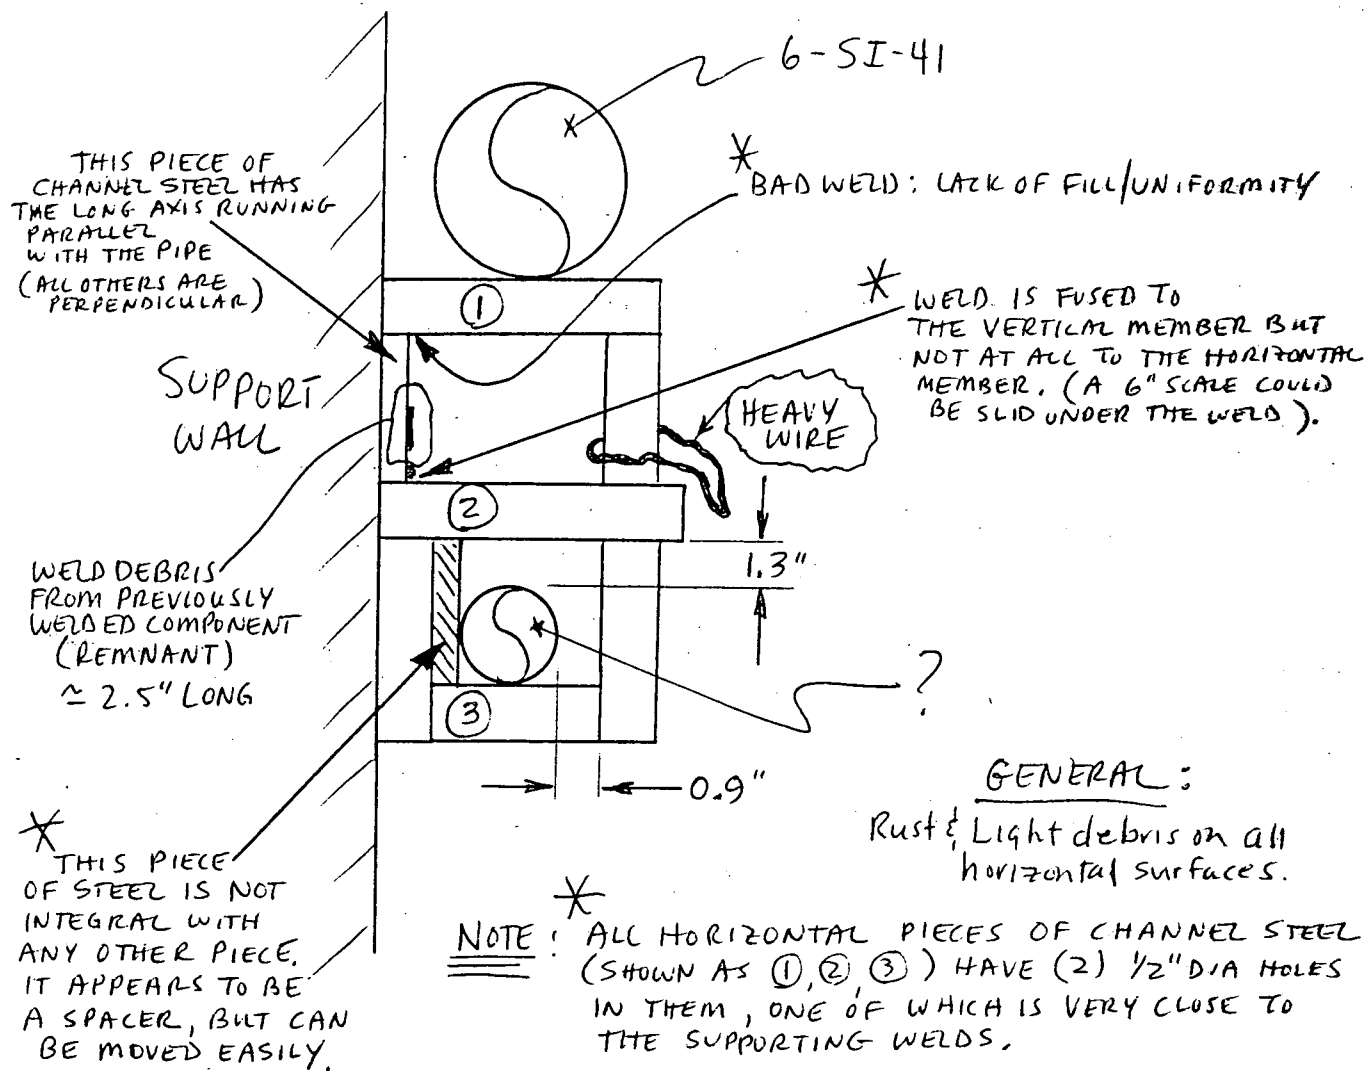 6-SI-41
THIS PIECE OF
CHANNEL STEEL HAS
THE LONG AXIS RUNNING
PARALLEL
WITH THE PIPE
(ALL OTHERS ARE
PERPENDICULAR)
*
BAD WELD: LACK OF FILL/UNIFORMITY
*
WELD IS FUSED TO
THE VERTICAL MEMBER BUT
NOT AT ALL TO THE HORIZONTAL
MEMBER. (A 6" SCALE COULD
BE SLID UNDER THE WELD).
1
SUPPORT
WALL
HEAVY
WIRE
2
1.3"
WELD DEBRIS
FROM PREVIOUSLY
WELDED COMPONENT
(REMNANT)
≃ 2.5" LONG
?
3
0.9"
GENERAL:
Rust & Light debris on all
horizontal surfaces.
*
THIS PIECE
OF STEEL IS NOT
INTEGRAL WITH
ANY OTHER PIECE.
IT APPEARS TO BE
A SPACER, BUT CAN
BE MOVED EASILY.
*
NOTE: ALL HORIZONTAL PIECES OF CHANNEL STEEL
(SHOWN AS ①,②,③) HAVE (2) 1/2" DIA HOLES
IN THEM, ONE OF WHICH IS VERY CLOSE TO
THE SUPPORTING WELDS.